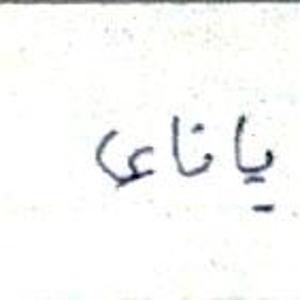 يا ناعى